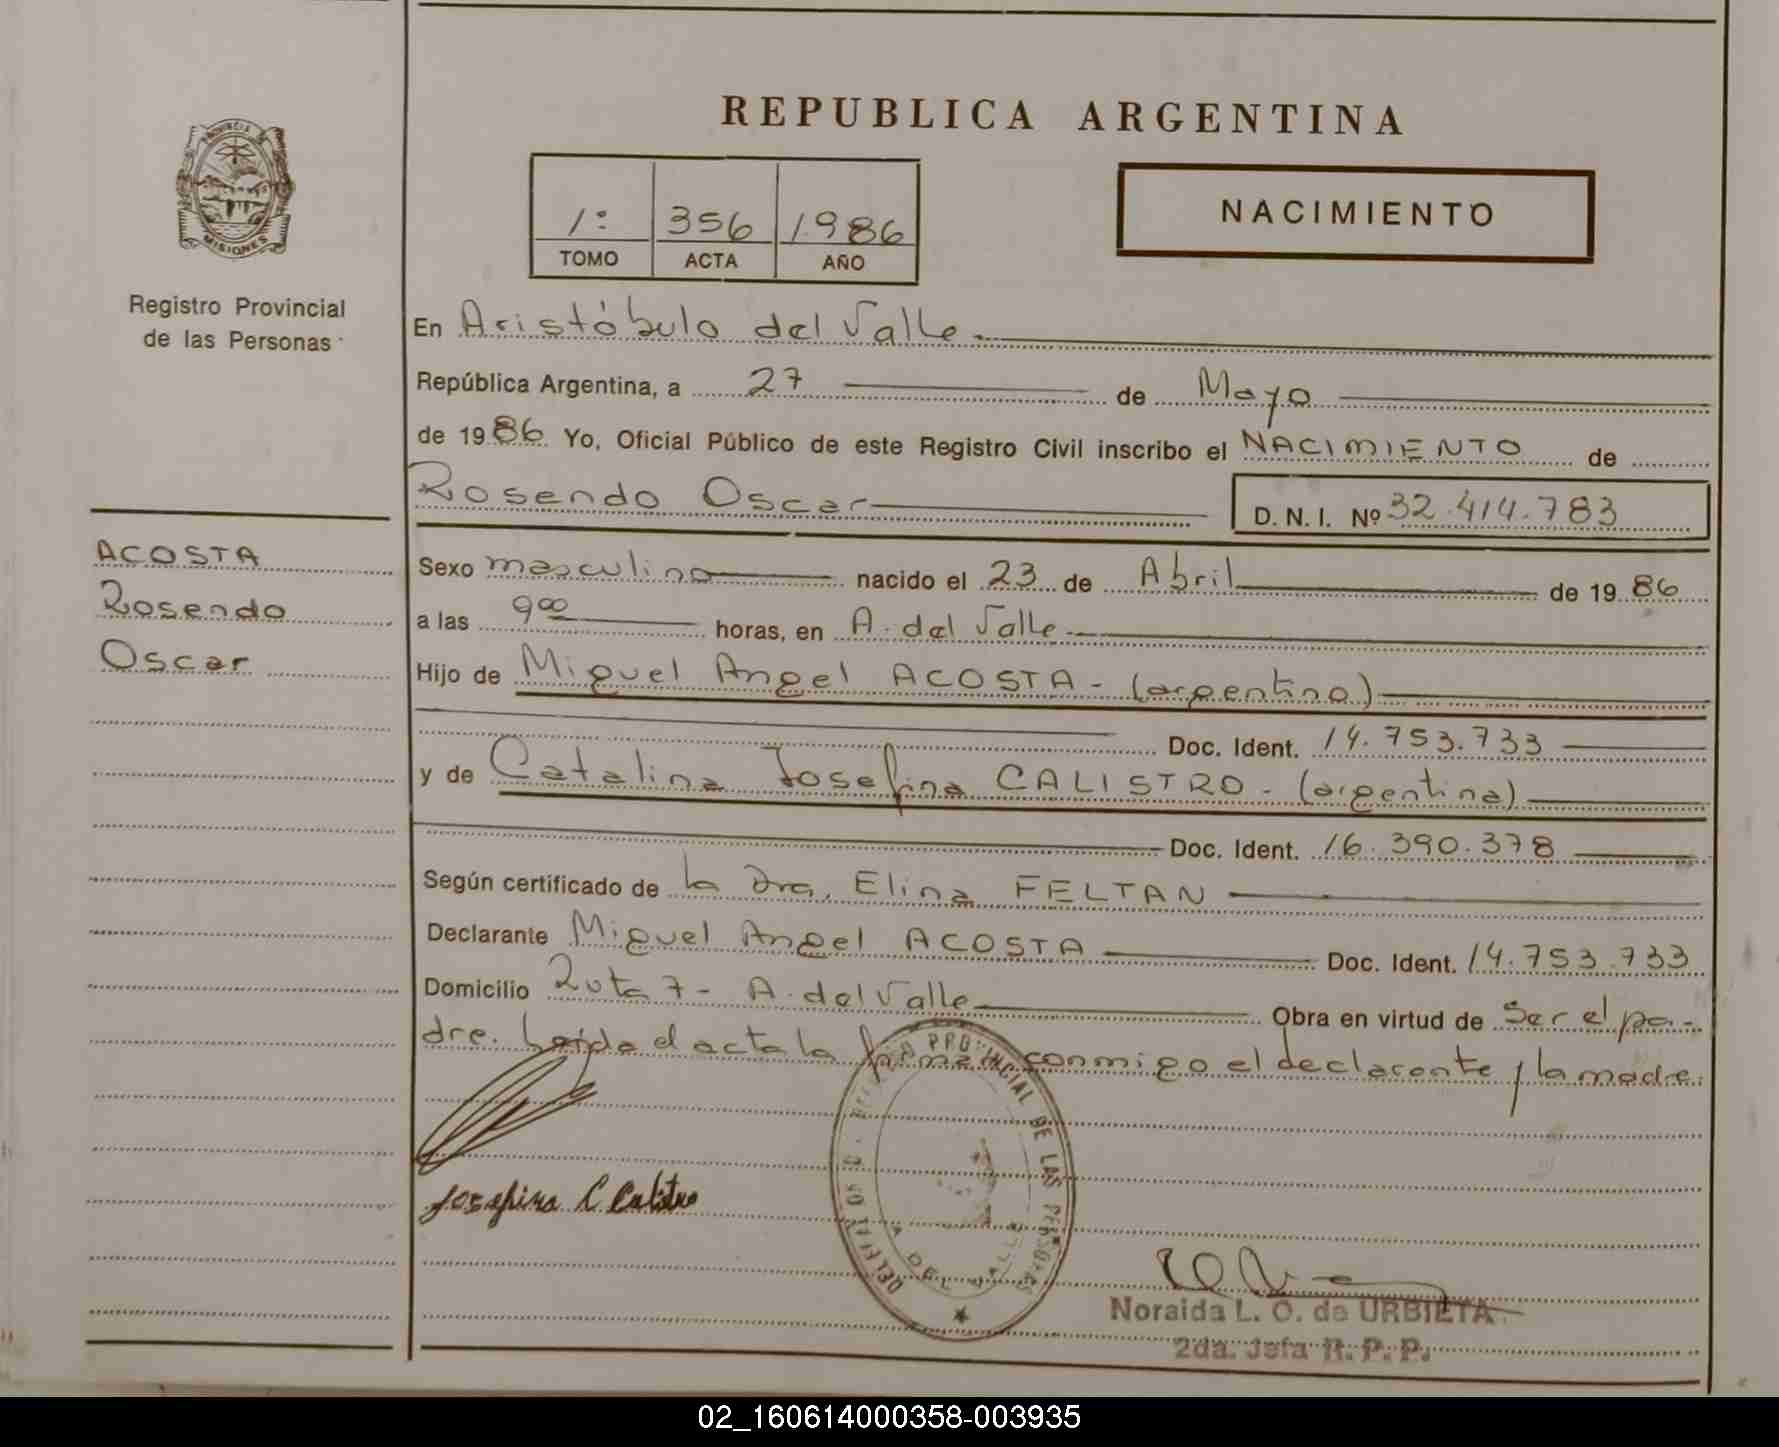 REPUBLICA ARGENTINA
PROVINCIA DE
MISIONES
Registro Provincial
de las Personas
1º 356 1986
TOMO ACTA AÑO
NACIMIENTO
En Aristóbulo del Valle
República Argentina, a 27 de Mayo
de 1986 Yo, Oficial Público de este Registro Civil inscribo el NACIMIENTO de
Rosendo Oscar
D. N. I. Nº 32.414.783
ACOSTA
Rosendo
Oscar
Sexo masculino nacido el 23 de Abril de 1986
a las 9 00 horas, en A. del Valle
Hijo de Miguel Angel ACOSTA - (argentino)
Doc. Ident. 14.753.733
y de Catalina Josefina CALISTRO - (argentina)
Doc. Ident. 16.390.378
Según certificado de la Dra. Elina FELTAN
Declarante Miguel Angel ACOSTA Doc. Ident. 14.753.733
Domicilio Ruta 7 - A. del Valle Obra en virtud de Ser el pa-
dre. Leída el acta la firma conmigo el declarante y la madre.
PROVINCIAL DE LAS PERSONAS
A DEL VALLE
Josefina C Calistro
Noraida L. O. de URBIETA
2da. Jefa R. P. P.
02_160614000358-003935